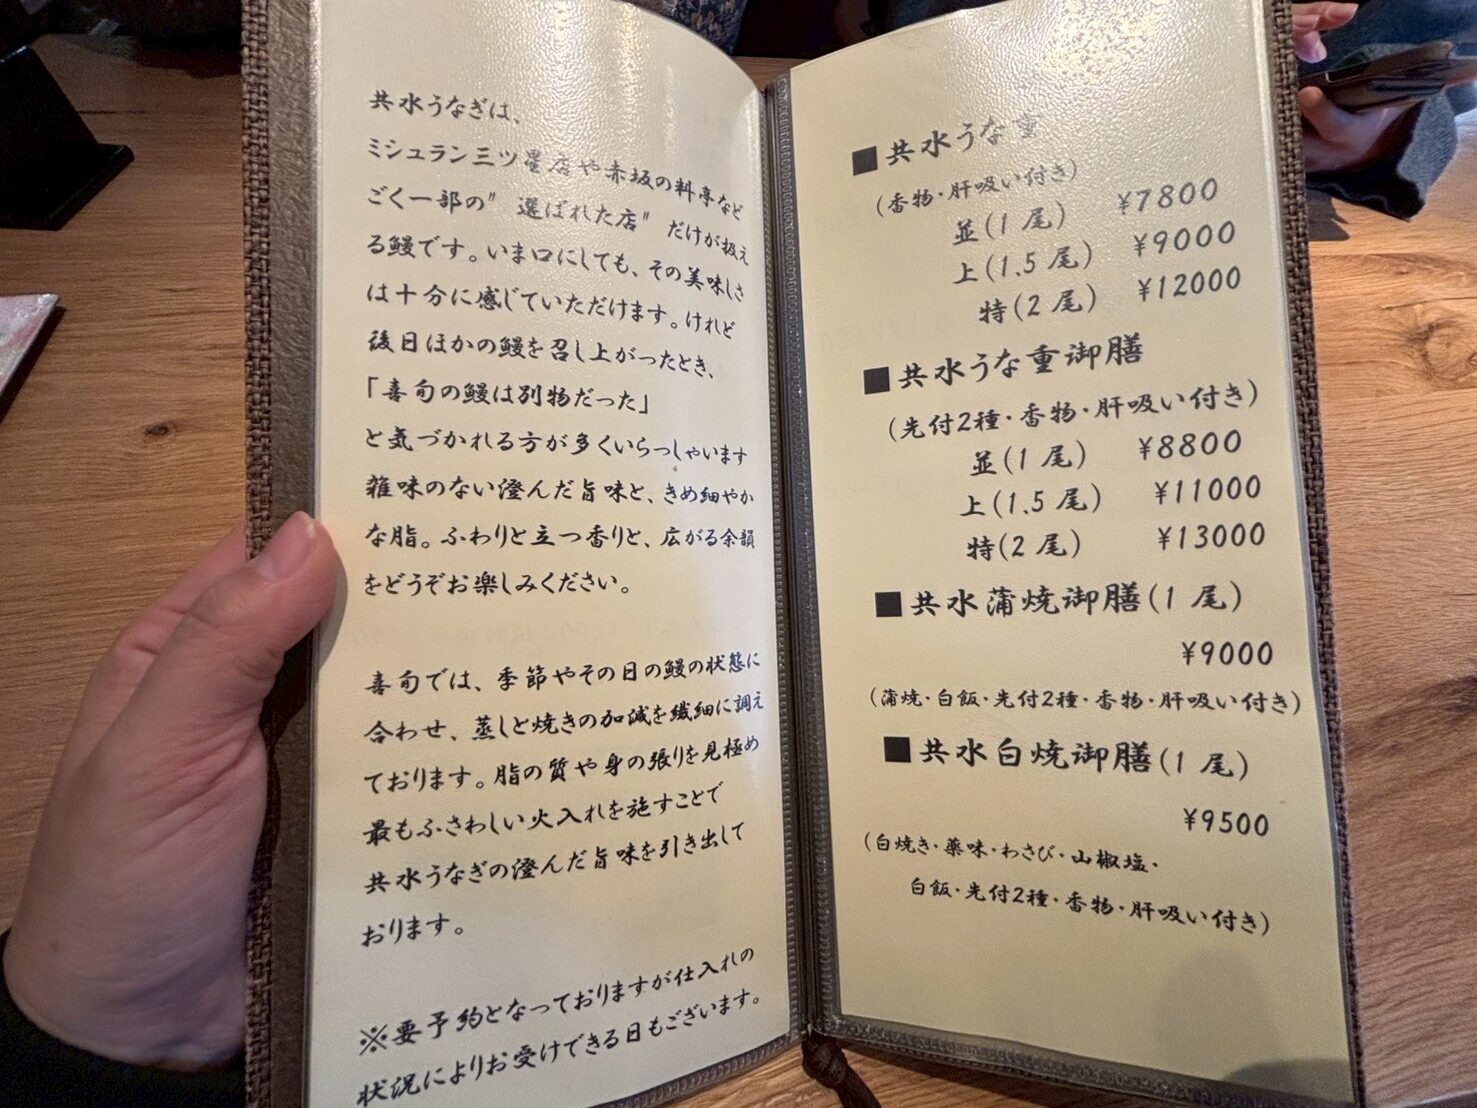 共水うなぎは、
ミシュラン三ツ星店や赤坂の料亭など
ごく一部の”選ばれた店”だけが扱え
る鰻です。いま口にしても、その美味しさ
は十分に感じていただけます。けれど
後日ほかの鰻を召し上がったとき、
「喜旬の鰻は別物だった」
と気づかれる方が多くいらっしゃいます
雑味のない澄んだ旨味と、きめ細やか
な脂。ふわりと立つ香りと、広がる余韻
をどうぞお楽しみください。
喜旬では、季節やその日の鰻の状態に
合わせ、蒸しと焼きの加減を繊細に調え
ております。脂の質や身の張りを見極め
最もふさわしい火入れを施すことで
共水うなぎの澄んだ旨味を引き出して
おります。
※要予約となっておりますが仕入れの
状況によりお受けできる日もございます。
■共水うな重
(香物・肝吸い付き)
並(1尾) ¥7800
上(1.5尾) ¥9000
特(2尾) ¥12000
■共水うな重御膳
(先付2種・香物・肝吸い付き)
並(1尾) ¥8800
上(1.5尾) ¥11000
特(2尾) ¥13000
■共水蒲焼御膳(1尾)
¥9000
(蒲焼・白飯・先付2種・香物・肝吸い付き)
■共水白焼御膳(1尾)
¥9500
(白焼き・薬味・わさび・山椒塩・
白飯・先付2種・香物・肝吸い付き)